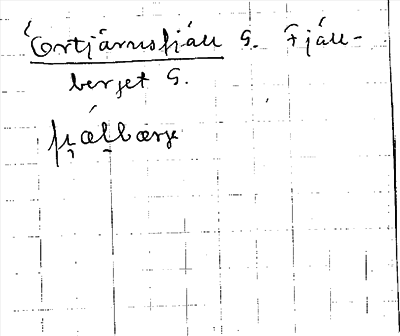 Gortjärnsfjäll G. Fjäll-
berget G.
fjälbærje